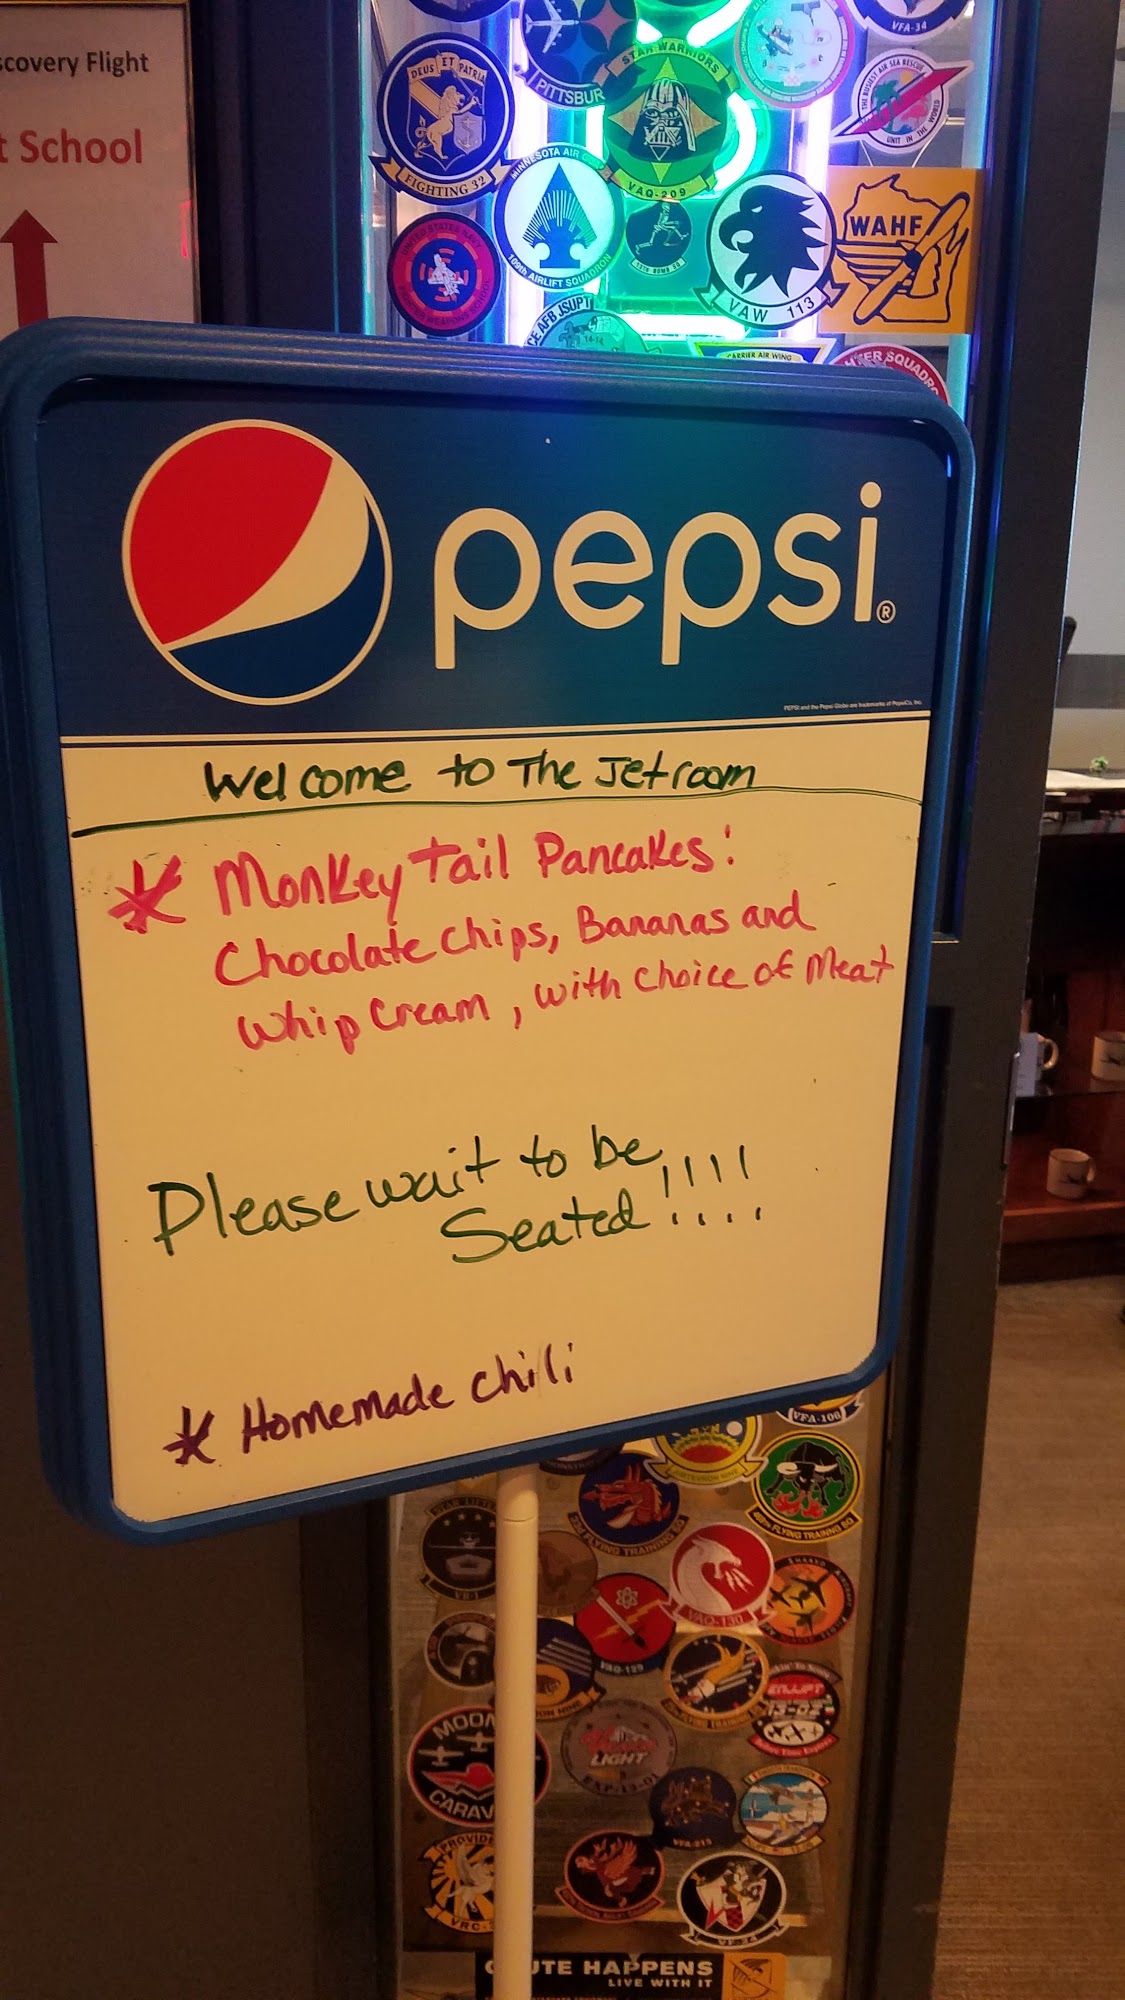 scovery Flight
t School
DEUS ET PATRIA
FIGHTING 32
PITTSBUR
STAR WARRIORS
VAQ-209
VFA-34
THE BUSIEST AIR SEA RESCUE
UNIT IN THE WORLD
MINNESOTA AIR
109th AIRLIFT SQUADRON
UNITED STATES NAVY
VAW 113
WAHF
CE AFB JSUPT
14-14
CARRIER AIR WING
TER SQUADRO
pepsi®
PEPSI and the Pepsi Globe are trademarks of PepsiCo, Inc.
Welcome to The Jetroom
* Monkey Tail Pancakes:
Chocolate chips, Bananas and
whip cream, with choice of Meat
Please wait to be
Seated!!!!
* Homemade chili
VFA-106
FLYING TRAINING
FLYING TRAINING SQ
VR-1
VAQ-130
VAQ-129
FLYING TRAINING
13-02
MOON
CARAV
LIGHT
PROVIDE
VRC-
VF-24
UTE HAPPENS
LIVE WITH IT